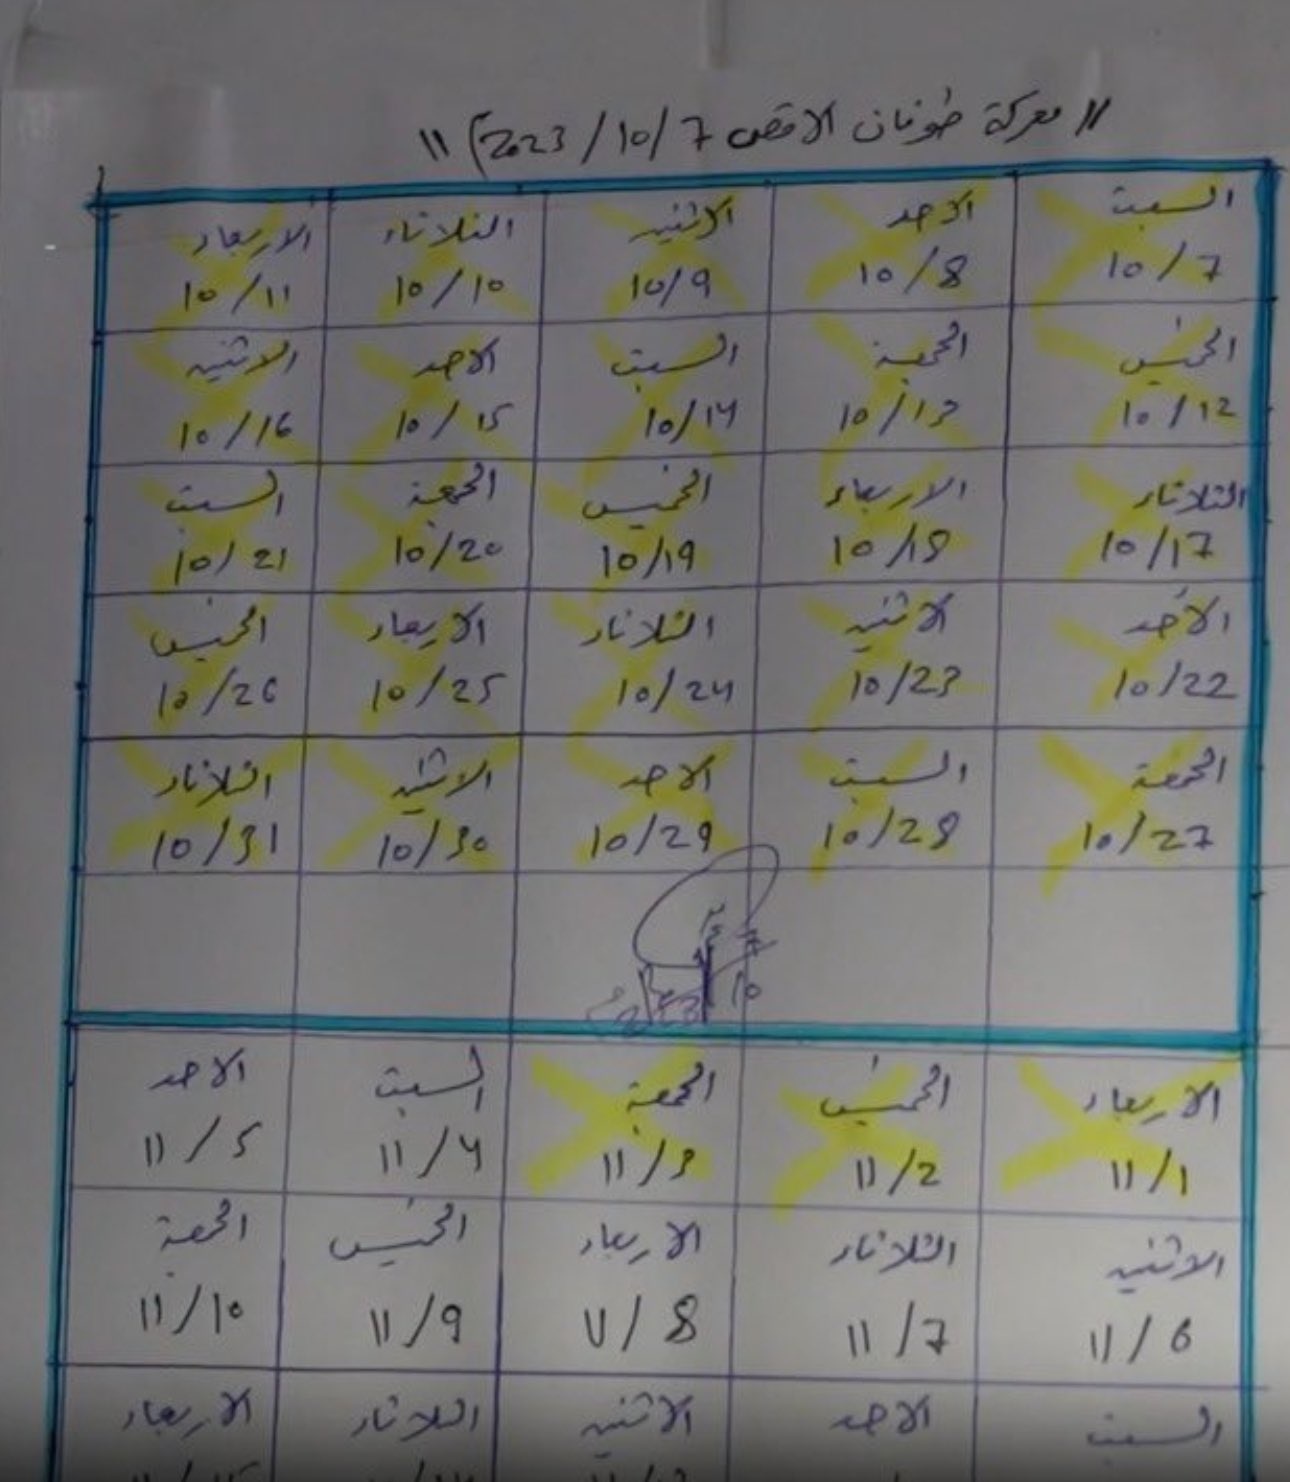 "معركة طوفان الاقصى 7/10/2023م"
السبت الاحد الاثنين الثلاثاء الاربعاء
10/7 10/8 10/9 10/10 10/11
الخميس الجمعة السبت الاحد الاثنين
10/12 10/13 10/14 10/15 10/16
الثلاثاء الاربعاء الخميس الجمعة السبت
10/17 10/18 10/19 10/20 10/21
الأحد الاثنين الثلاثاء الاربعاء الخميس
10/22 10/23 10/24 10/25 10/26
الجمعة السبت الاحد الاثنين الثلاثاء
10/27 10/28 10/29 10/30 10/31
الاربعاء الخميس الجمعة السبت الاحد
11/1 11/2 11/3 11/4 11/5
الاثنين الثلاثاء الاربعاء الخميس الجمعة
11/6 11/7 11/8 11/9 11/10
السبت الاحد الاثنين الثلاثاء الاربعاء